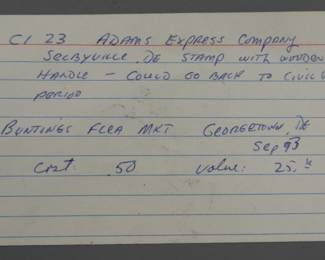 CI 23 ADAMS EXPRESS COMPANY
SELBYVILLE, DE STAMP WITH WOODEN
HANDLE - COULD GO BACK TO CIVIL W
PERIOD
BUNTINGS FLEA MKT GEORGETOWN, DE
Sep 93
Cost: .50 Value: 25.